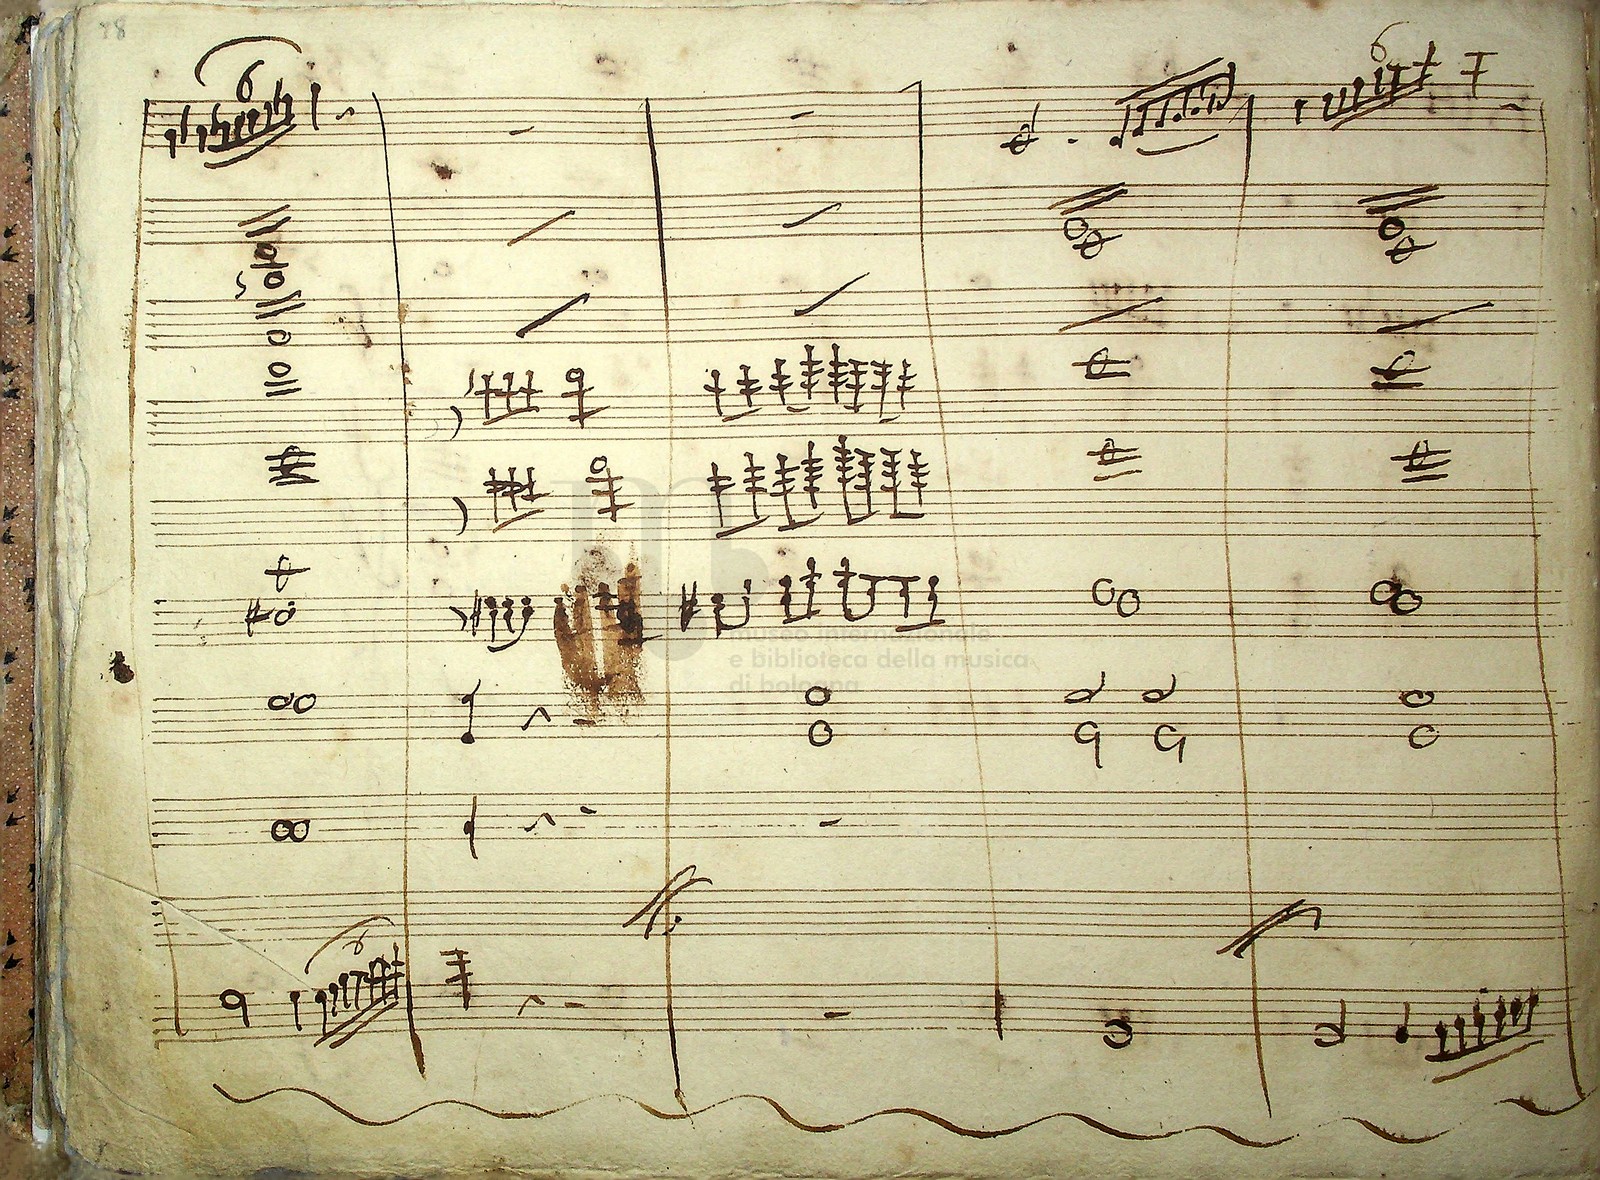 18
6
6
museo internazionale
e biblioteca della musica
di bologna
6